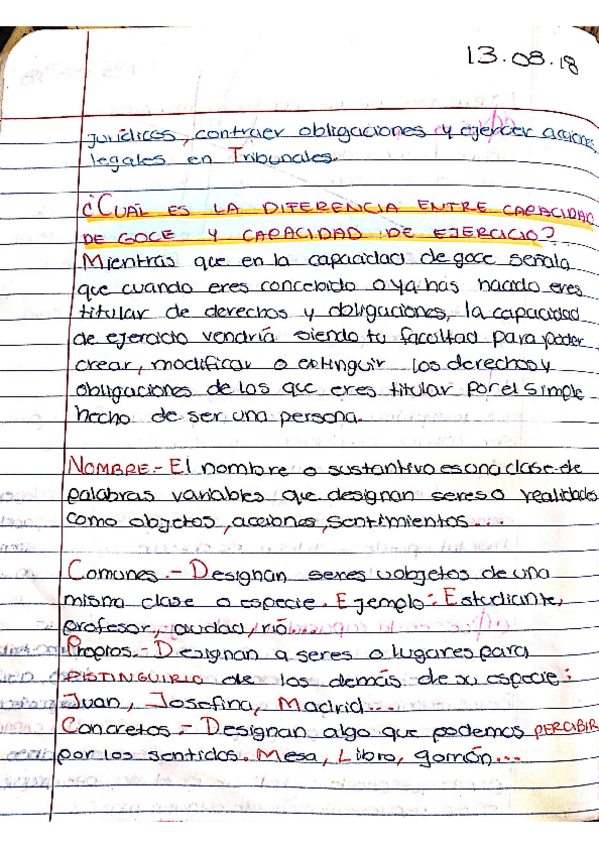 13.08.18
jurídicos, contraer obligaciones y ejercer acciones
legales en Tribunales.
¿CUÁL ES LA DIFERENCIA ENTRE CAPACIDAD
DE GOCE Y CAPACIDAD DE EJERCICIO?
Mientras que en la capacidad de goce señala
que cuando eres concebido o ya has nacido eres
titular de derechos y obligaciones, la capacidad
de ejercicio vendría siendo tu facultad para poder
crear, modificar o extinguir los derechos y
obligaciones de los que eres titular por el simple
hecho de ser una persona.
NOMBRE.- El nombre o sustantivo es una clase de
palabras variables que designan seres o realidades
como objetos, acciones, sentimientos...
Comunes.- Designan seres u objetos de una
misma clase o especie. Ejemplo: Estudiante,
profesor, ciudad, río...
Propios.- Designan a seres o lugares para
DISTINGUIRLO de los demás de su especie:
Juan, Josefina, Madrid...
Concretos.- Designan algo que podemos PERCIBIR
por los sentidos. Mesa, Libro, gorrión...